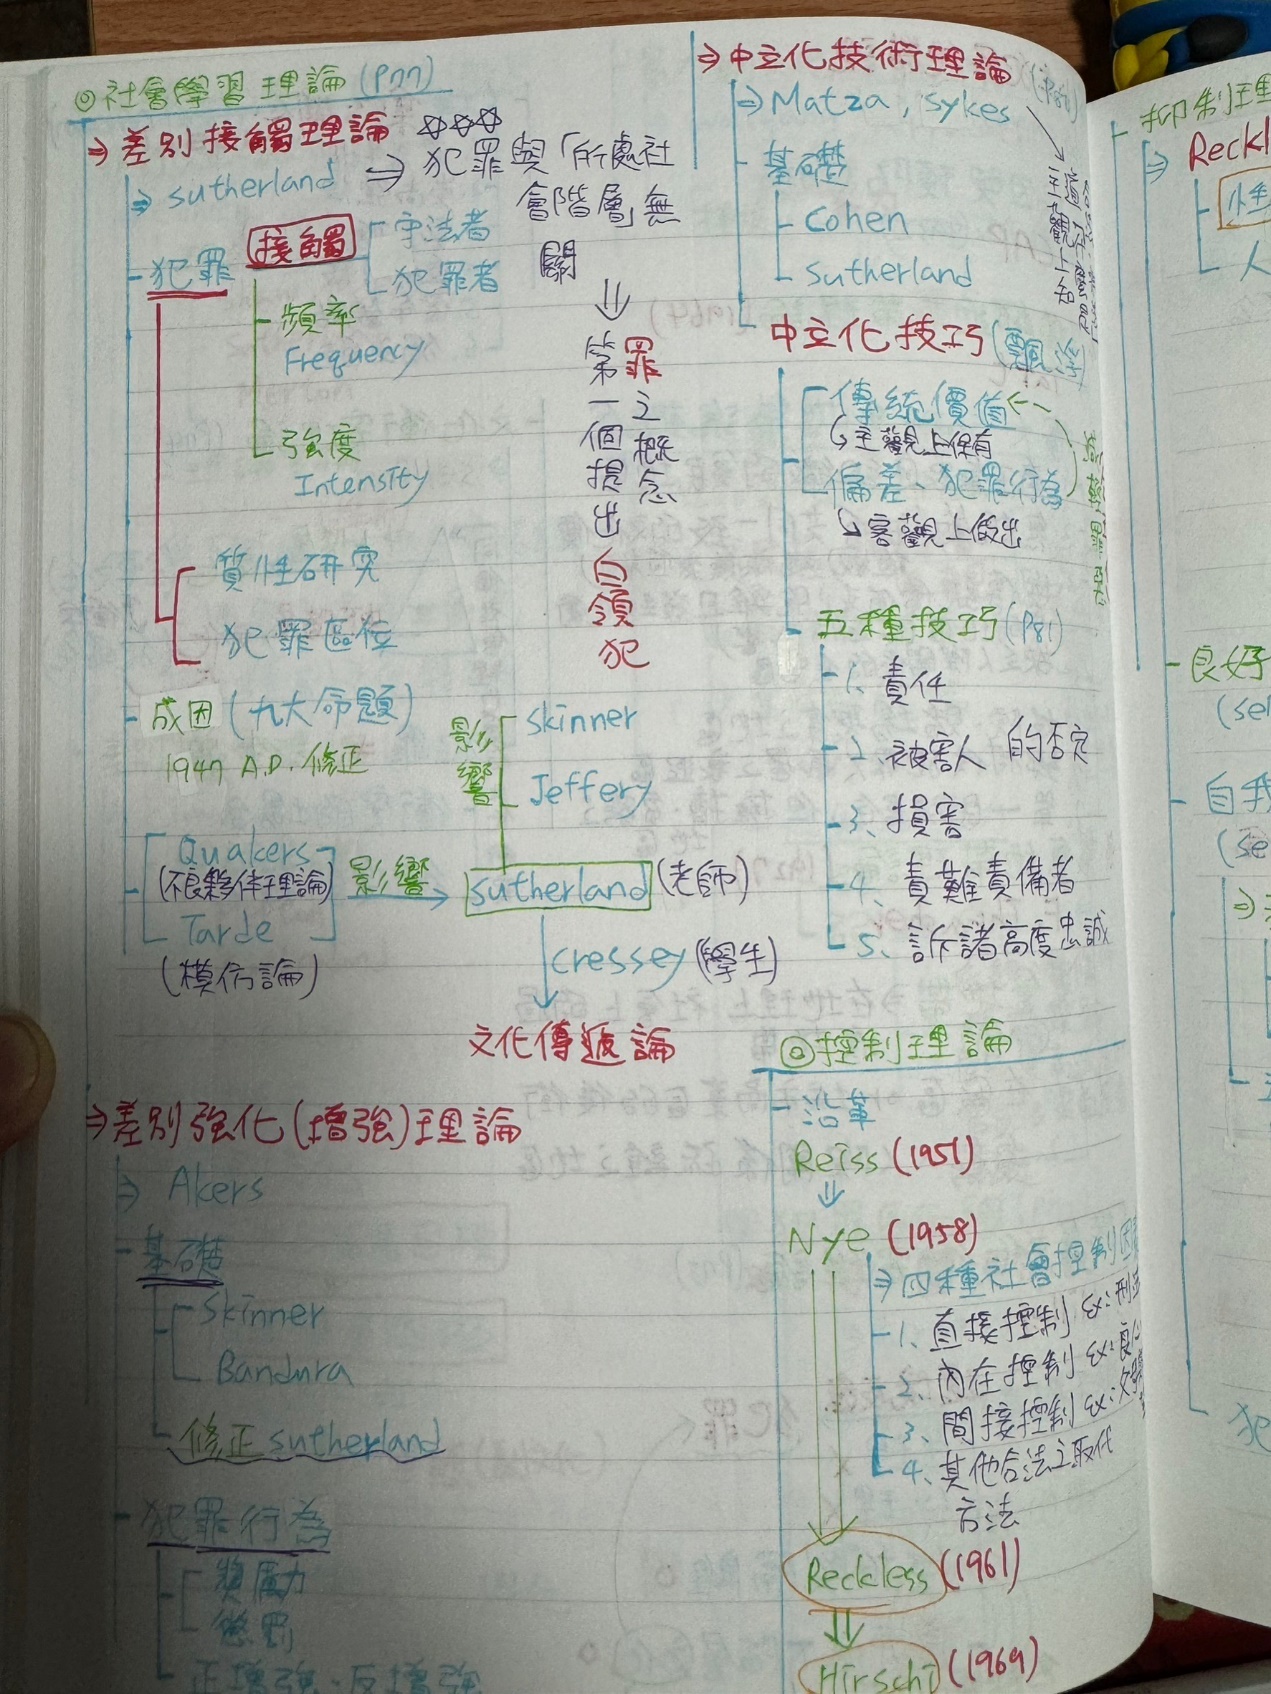 ◎社會學習理論(P77)
⇒差別接觸理論 ☆☆☆
⇒sutherland ⇒ 犯罪與「所處社
會階層」無
關
犯罪 接觸 守法者
犯罪者
頻率
Frequency
強度
Intensity
⇓
第一個提出
罪之概念
白領犯
質性研究
犯罪區位
成因(九大命題)
1947 A.D. 修正
影響
Skinner
Jeffery
Quakers
(不良夥伴理論) 影響 → sutherland (老師)
Tarde
(模仿論)
cressey (學生)
文化傳遞論
⇒差別強化(增強)理論
⇒ Akers
基礎
Skinner
Bandura
修正sutherland
犯罪行為
獎勵
懲罰
正增強、反增強
⇒中立化技術理論
⇒Matza, sykes
基礎
Cohen
sutherland
主觀上知
中立化技巧(飄浮)
傳統價值←
↳主觀上保有
偏差、犯罪行為
↳客觀上做出
五種技巧(P81)
1、責任
2、被害人 的否定
3、損害
4、責難責備者
5、訴諸高度忠誠
◎控制理論
沿革
Reiss (1951)
⇓
Nye (1958)
⇒四種社會控制因
1、直接控制 ex:刑
2、內在控制 ex:良
3、間接控制 ex:
4、其他合法之取代
方法
Reckless (1961)
⇓
Hirschi (1969)
抑制理
⇒ Reckl
人
良好
(sel
自我
(se
犯